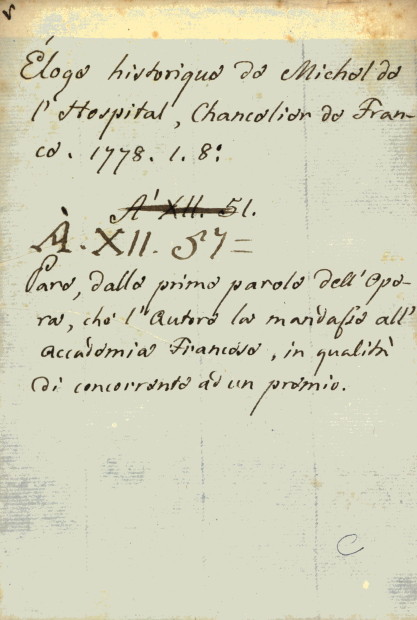 Éloge historique de Michel de
l'Hospital, Chancelier de Fran-
ce. 1778. 1. 8:
A' XII. 51.
À. XII. 57=
Pare, dalle prime parole dell'Ope-
ra, che l'Autore la mandasse all'
Accademia Francese, in qualità
di concorrente ad un premio.
C